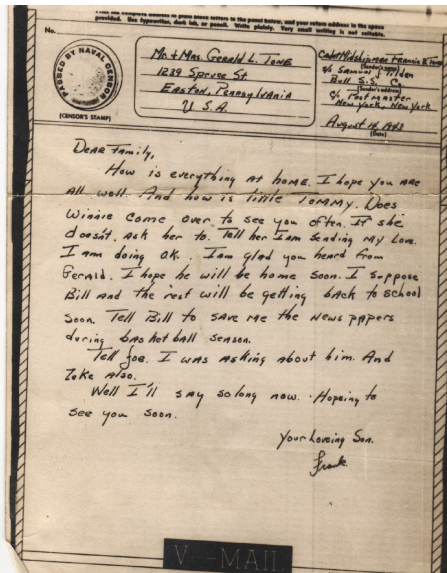 Print the complete address in plain block letters in the panel below, and your return address in the space
provided. Use typewriter, dark ink, or pencil. Write plainly. Very small writing is not suitable.
No.
PASSED BY NAVAL CENSOR
(CENSOR'S STAMP)
Mr. + Mrs. Gerald L. Tone
1239 Spruce St
Easton, Pennsylvania
U. S. A.
Cadet Midshipman Francis E. Tone
(Sender's name)
SS Samuel J Tilden
Bull S.S. Co.
(Sender's address)
c/o Postmaster
New York, New York
August 14, 1943
(Date)
Dear Family,
How is everything at home. I hope you are
all well. And how is little Tommy. Does
Winnie come over to see you often. If she
doesn't. ask her to. Tell her I am sending my Love.
I am doing OK. I am glad you heard from
Gerald. I hope he will be home soon. I suppose
Bill and the rest will be getting back to school
soon. Tell Bill to save me the news papers
during basketball season.
Tell Joe. I was asking about him. And
Zeke also.
Well I'll say so long now. Hopeing to
see you soon.
Your Loveing Son.
Frank
V···-MAIL